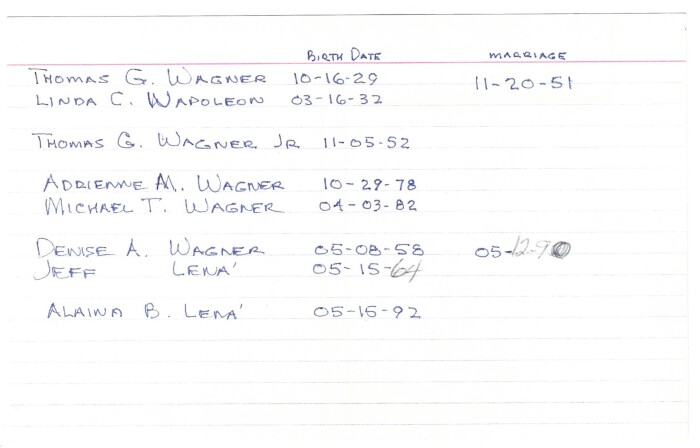 BIRTH DATE MARRIAGE
THOMAS G. WAGNER 10-16-29 11-20-51
LINDA C. WAPOLEON 03-16-32
THOMAS G. WAGNER JR 11-05-52
ADRIENNE M. WAGNER 10-29-78
MICHAEL T. WAGNER 04-03-82
DENISE A. WAGNER 05-08-58 05-12-90
JEFF LENA' 05-15-64
ALAINA B. LENA' 05-15-92